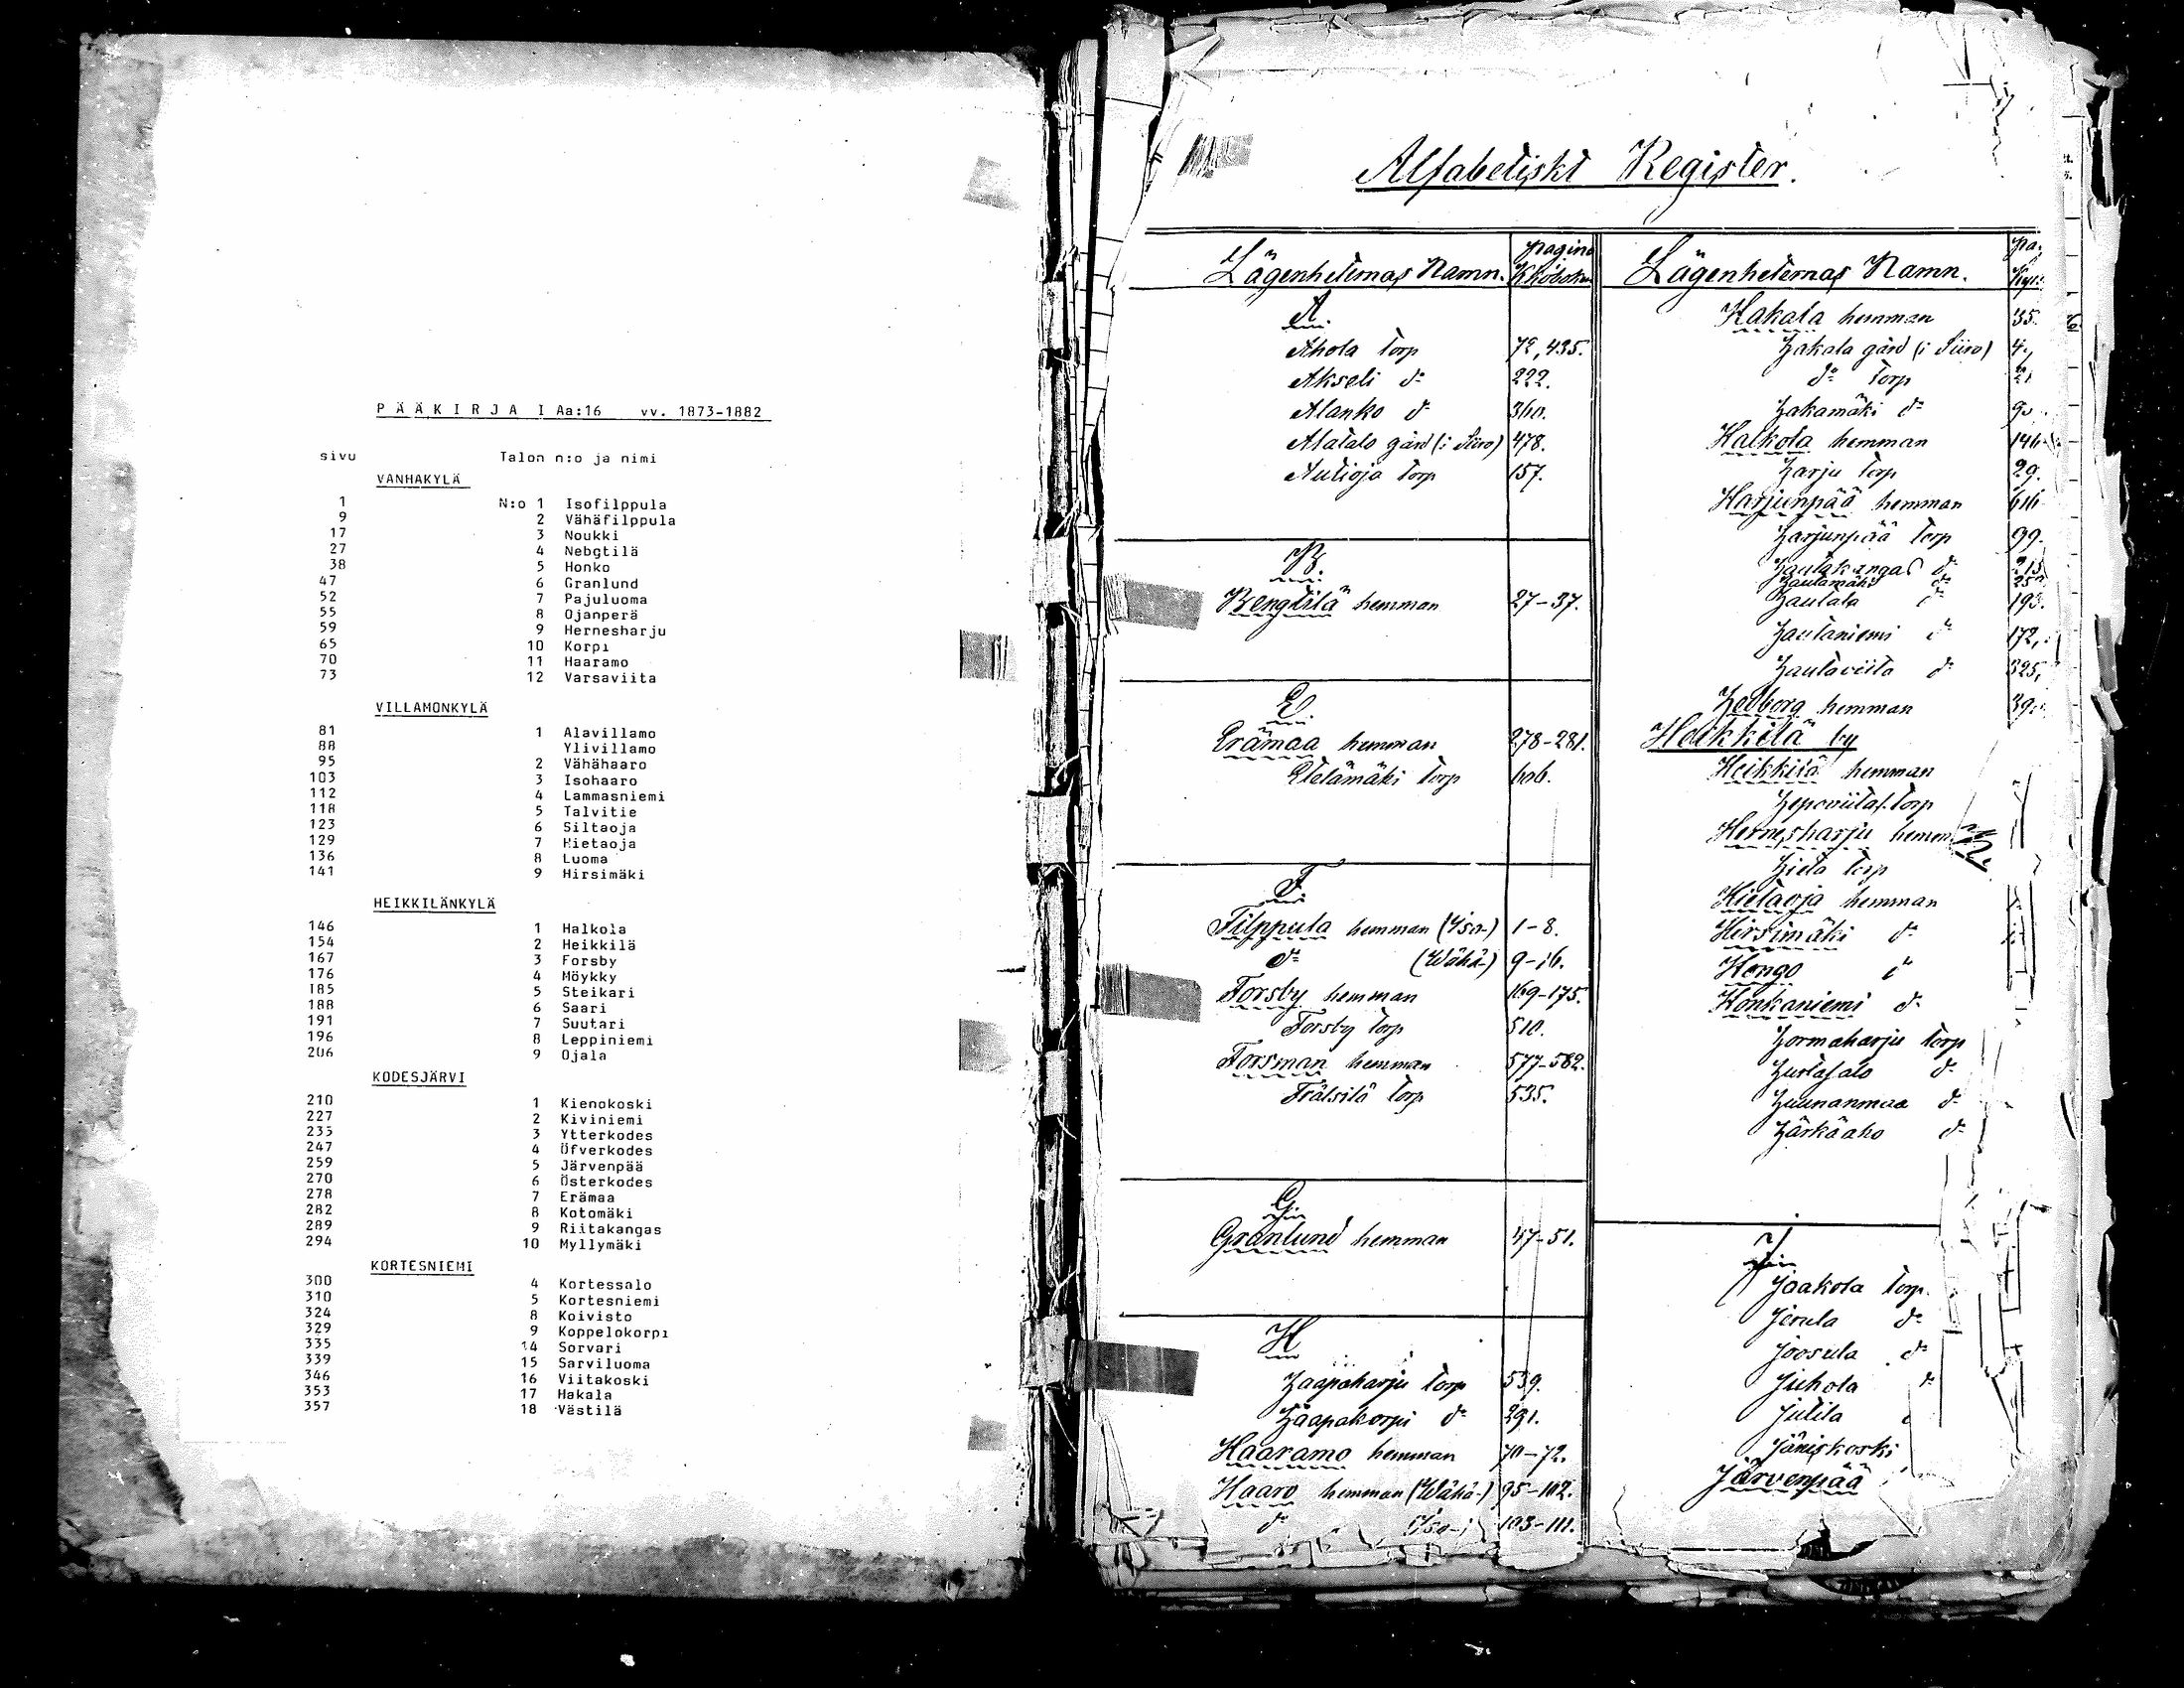 PÄÄKIRJA I Aa:16 vv. 1873-1882
sivu Talon n:o ja nimi
VANHAKYLÄ
1 N:o 1 Isofilppula
9 2 Vähäfilppula
17 3 Noukki
27 4 Nebgtilä
38 5 Honko
47 6 Granlund
52 7 Pajuluoma
55 8 Ojanperä
59 9 Hernesharju
65 10 Korpi
70 11 Haaramo
73 12 Varsaviita
VILLAMONKYLÄ
81 1 Alavillamo
88 Ylivillamo
95 2 Vähähaaro
103 3 Isohaaro
112 4 Lammasniemi
118 5 Talvitie
123 6 Siltaoja
129 7 Hietaoja
136 8 Luoma
141 9 Hirsimäki
HEIKKILÄNKYLÄ
146 1 Halkola
154 2 Heikkilä
167 3 Forsby
176 4 Möykky
185 5 Steikari
188 6 Saari
191 7 Suutari
196 8 Leppiniemi
206 9 Ojala
KODESJÄRVI
210 1 Kienokoski
227 2 Kiviniemi
235 3 Ytterkodes
247 4 Öfverkodes
259 5 Järvenpää
270 6 Österkodes
278 7 Erämaa
282 8 Kotomäki
289 9 Riitakangas
294 10 Myllymäki
KORTESNIEMI
300 4 Kortessalo
310 5 Kortesniemi
324 8 Koivisto
329 9 Koppelokorpi
335 14 Sorvari
339 15 Sarviluoma
346 16 Viitakoski
353 17 Hakala
357 18 Västilä
Alfabetiskt Register.
Lägenheternas Namn. pagina
A.
Ahola torp 72, 435.
Akseli d:o 222.
Alanko d:o 360.
Alatalo gård (i Siiro) 478.
Autioja torp 157.
B.
Bengtilä hemman 27-37.
E.
Erämaa hemman 278-281.
Etelämäki torp 606.
F.
Filppula hemman (Iso-) 1-8.
d:o (Wähä-) 9-16.
Forsby hemman 169-175.
Forsby torp 510.
Forsman hemman 577-582.
Frälsilä torp 535.
G.
Granlund hemman 47-51.
H
Haapaharju torp 539.
Haapakorpi d:o 291.
Haaramo hemman 70-72.
Haaro hemman (Wähä-) 95-102.
d:o (Iso-) 103-111.
Lägenheternas Namn. pa.
Hakala hemman 35.
Hakala gård (i Siiro) 4.
d:o torp 21
Hakamäki d:o 90
Halkola hemman 146
Harju torp 29.
Harjunpää hemman 616
Harjunpää torp 99.
Hautakangas d:o 215
Hautamäki d:o 25
Hautala d:o 193.
Hautaniemi d:o 172,
Hautaviita d:o 325,
Hedborg hemman 39
Heikkilä by
Heikkilä hemman
torp
Hernesharju hemm
Hieta torp
Hietaoja hemman
Hirsimäki d:o
Hongo d:o
Honkaniemi d:o
Hormaharju torp
d:o
Huunanmaa d:o
Härkäaho d:o
J
Jaakola torp
Jerula d:o
Joosula d:o
Juhola d:o
Jutila
Jäniskoski
Järvenpää